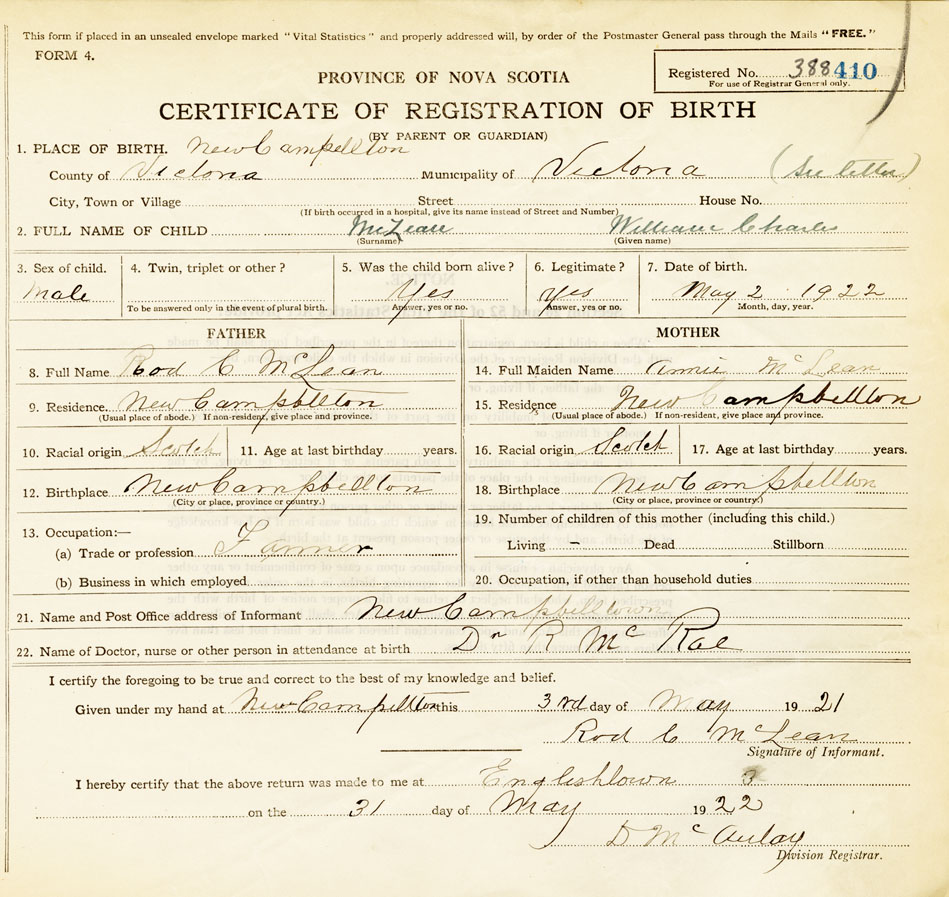 This form if placed in an unsealed envelope marked "Vital Statistics" and properly addressed will, by order of the Postmaster General pass through the Mails "FREE."
FORM 4.
PROVINCE OF NOVA SCOTIA
Registered No. 388 410
For use of Registrar General only.
CERTIFICATE OF REGISTRATION OF BIRTH
(BY PARENT OR GUARDIAN)
1. PLACE OF BIRTH. New Campellton
County of Victoria Municipality of Victoria (See letter)
City, Town or Village Street House No.
(If birth occurred in a hospital, give its name instead of Street and Number)
2. FULL NAME OF CHILD McLean William Charles
(Surname) (Given name)
3. Sex of child. 4. Twin, triplet or other? 5. Was the child born alive? 6. Legitimate? 7. Date of birth.
Male Yes yes May 2 1922
To be answered only in the event of plural birth. Answer, yes or no. Answer, yes or no. Month, day, year.
FATHER MOTHER
8. Full Name Rod C McLean 14. Full Maiden Name Annie McLean
9. Residence. New Campbellton 15. Residence New Campbellton
(Usual place of abode.) If non-resident, give place and province. (Usual place of abode.) If non-resident, give place and province.
10. Racial origin Scotch 11. Age at last birthday years. 16. Racial origin Scotch 17. Age at last birthday years.
12. Birthplace New Campbellton 18. Birthplace New Campbellton
(City or place, province or country.) (City or place, province or country.)
13. Occupation:— 19. Number of children of this mother (including this child.)
(a) Trade or profession Farmer Living – Dead Stillborn
(b) Business in which employed 20. Occupation, if other than household duties
21. Name and Post Office address of Informant New Campbelltown
22. Name of Doctor, nurse or other person in attendance at birth Dr R McRae
I certify the foregoing to be true and correct to the best of my knowledge and belief.
Given under my hand at New Campellton this 3rd day of May 19 21
Rod C McLean
Signature of Informant.
I hereby certify that the above return was made to me at Englishtown 3
on the 31 day of May 19 22
D McAulay
Division Registrar.